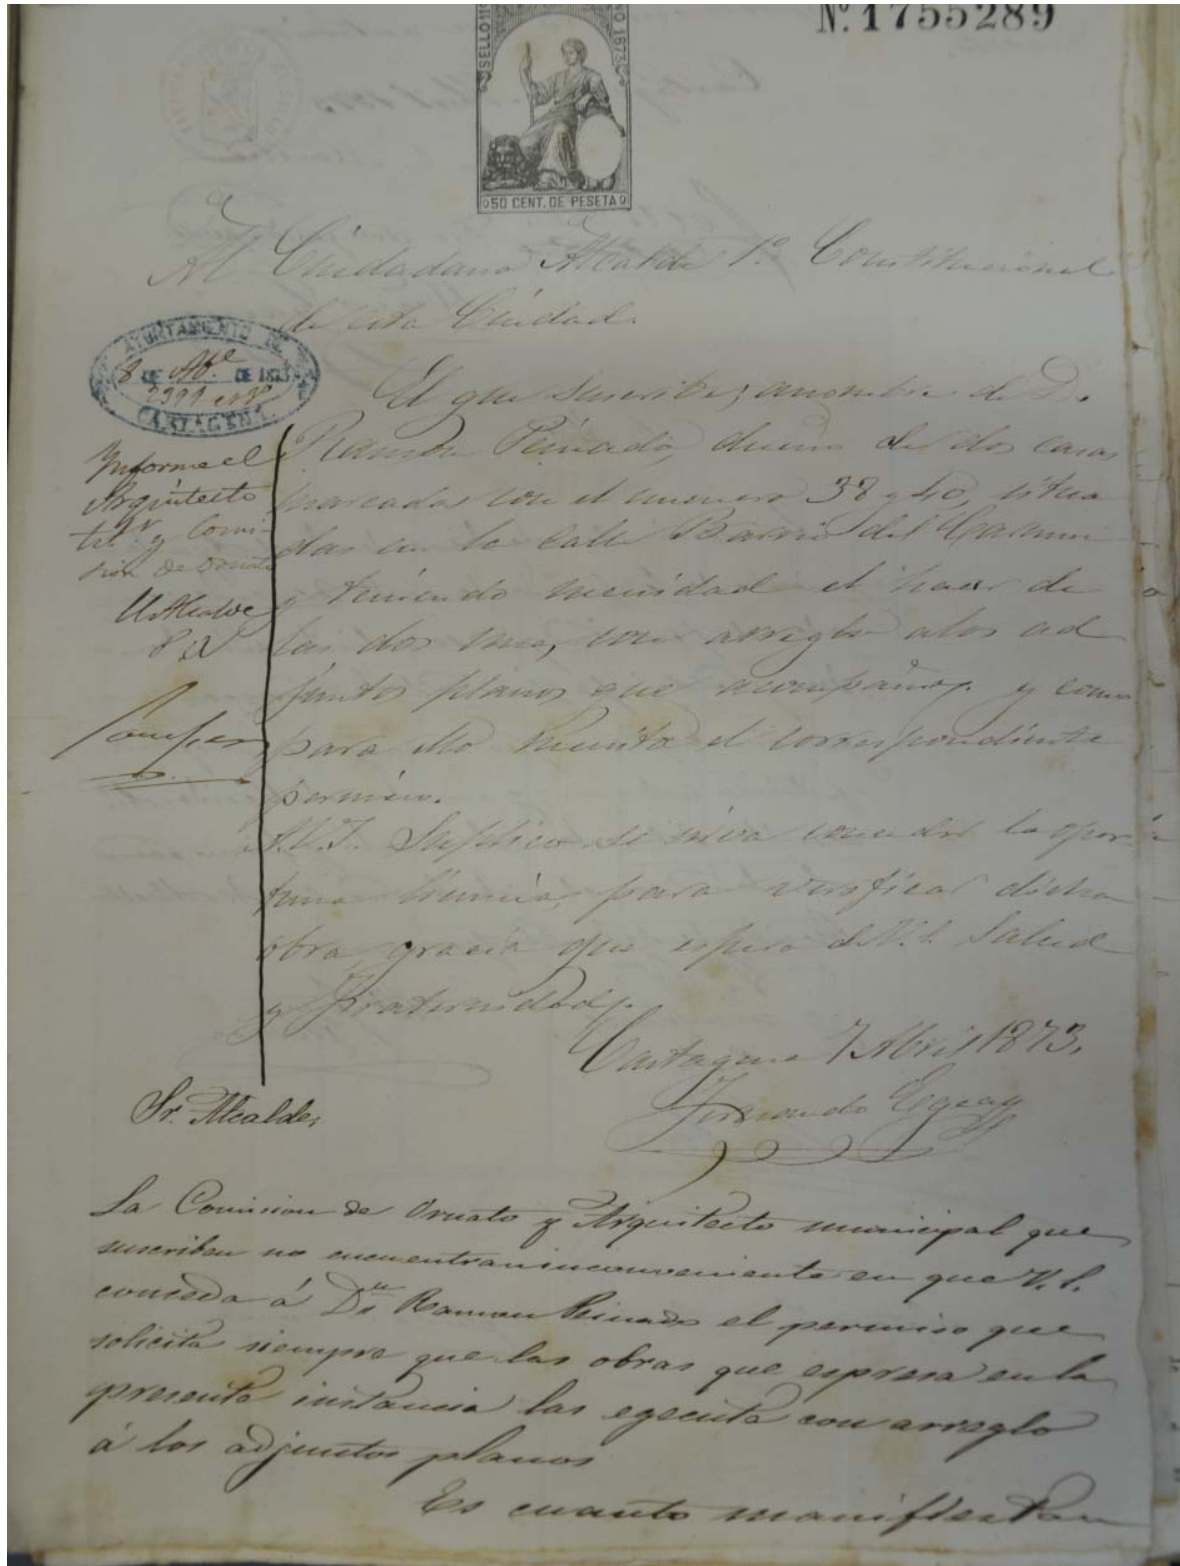 Nº 1755289
SELLO 11º
AÑO 1873
50 CENT. DE PESETA
Al Ciudadano Alcalde 1º Constitucional
de esta Ciudad.
AYUNTAMIENTO DE
8 DE Abl DE 1873
2991
CARTAGENA
El que suscribe, anombre de D.
Ramon Peinado, dueño de dos casas
marcadas con el numero 38 y 40, situa
das en la calle Barrio del Carmen
y teniendo necesidad el hacer de
las dos una, con arreglo alos ad
juntos planos que acompaña, y como
para ello necesita el correspondiente
permiso.
Informe el
Arquitecto
tit.r y Comi-
sion de Ornato
El Alcalde
A.V.I. Suplico se sirva conceder la opor-
tuna licencia, para verificar dicha
obra, gracia que espera de V.I. Salud
y fraternidad.
Cartagena 7 Abril 1873.
Fernando Egea
Sr. Alcalde,
La Comision de Ornato y Arquitecto municipal que
suscriben no encuentran inconveniente en que V.S.
conceda á Dn. Ramon Peinado el permiso que
solicita siempre que las obras que espresa en la
presente instancia las egecute con arreglo
á los adjuntos planos
Es cuanto manifiestan